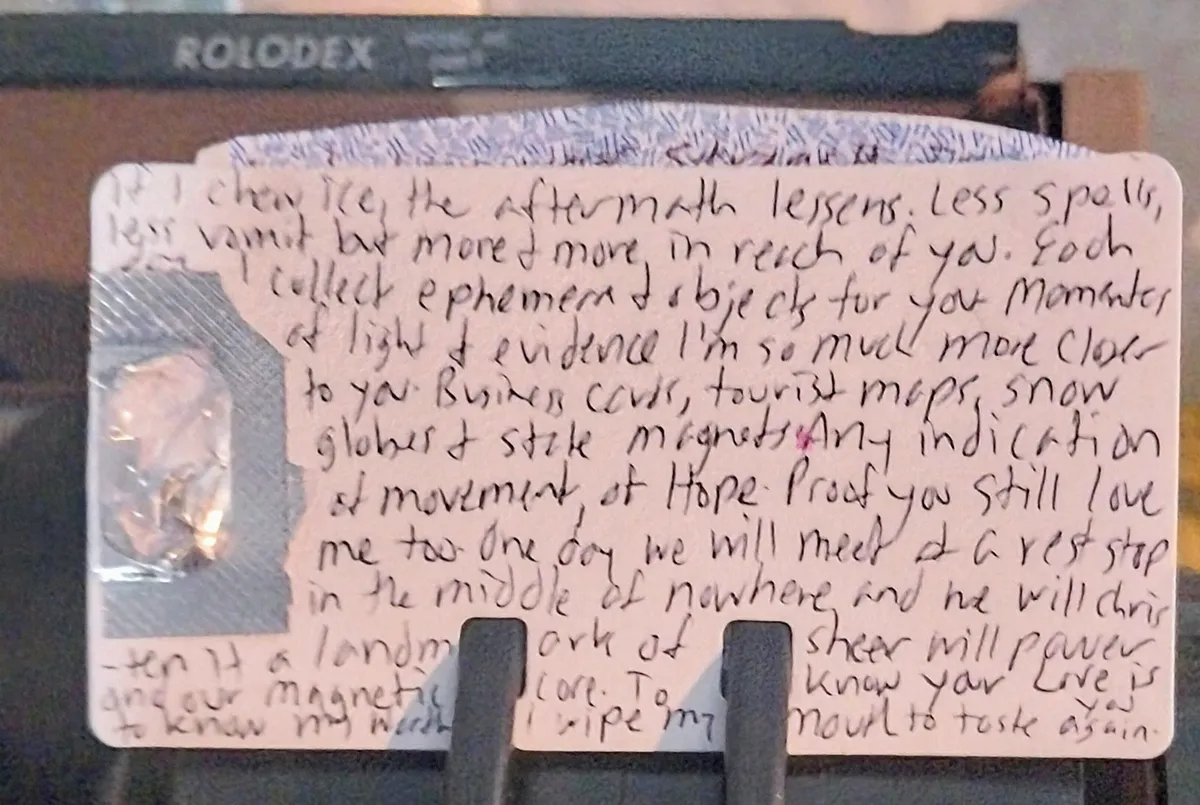 ROLODEX
If I chew ice, the aftermath lessens. Less spells,
less vomit but more & more in reach of you. Each
day I collect ephemera & objects for you Momentos
of light & evidence I'm so much more closer
to you. Business cards, tourist maps, snow
globes & state magnets. Any indication
of movement, of Hope. Proof you still love
me too. One day we will meet at a rest stop
in the middle of nowhere and we will chris
-ten it a landmark of sheer will power
and our magnetic core. To know your Love is
to know my worth I wipe my mouth to taste you again.